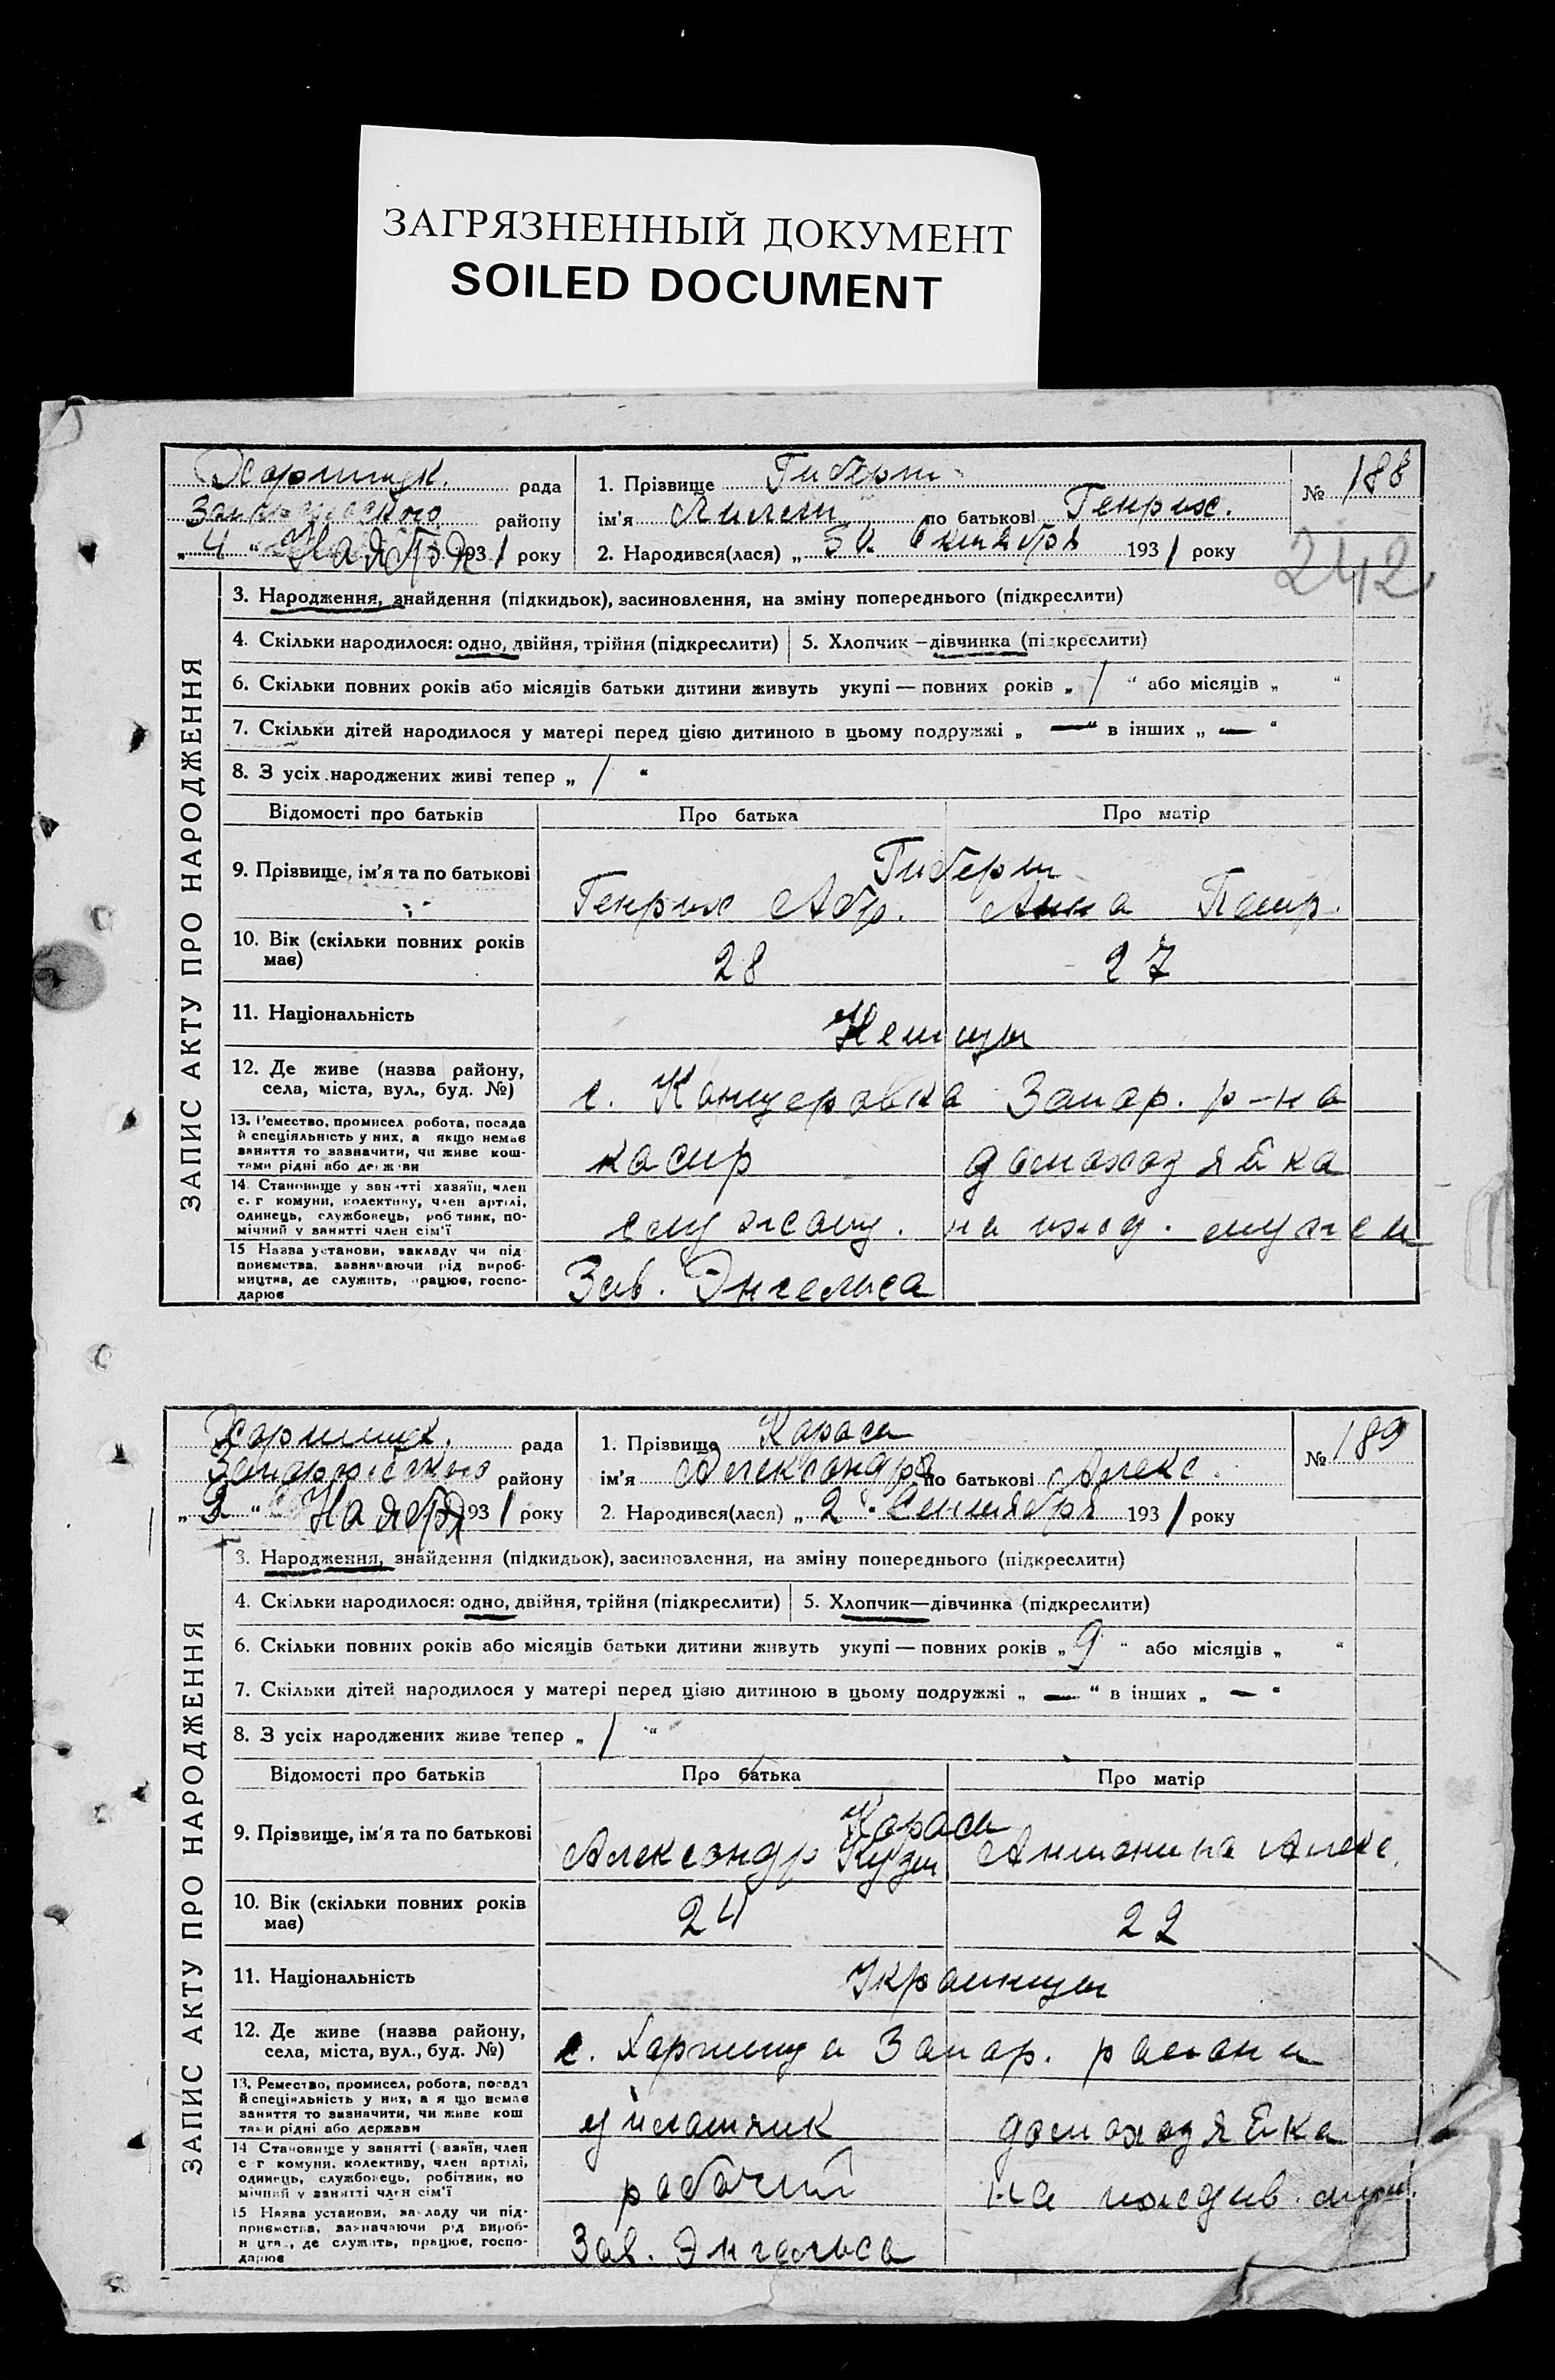 ЗАГРЯЗНЕННЫЙ ДОКУМЕНТ
SOILED DOCUMENT
рада
району
„ 4 “ Наября 1931 року
1. Прізвище Гиберт
ім'я по батькові Генрих.
2. Народився(лася) „ Октября 1931 року
№ 188
242
ЗАПИС АКТУ ПРО НАРОДЖЕННЯ
3. Народження, знайдення (підкидьок), засиновлення, на зміну попереднього (підкреслити)
4. Скільки народилося: одно, двійня, трійня (підкреслити)
5. Хлопчик — дівчинка (підкреслити)
6. Скільки повних років або місяців батьки дитини живуть укупі — повних років „ 1 “ або місяців „ “
7. Скільки дітей народилося у матері перед цією дитиною в цьому подружжі „ — “ в інших „ — “
8. З усіх народжених живі тепер „ 1 “
Відомості про батьків
Про батька
Про матір
9. Прізвище, ім'я та по батькові
Гиберт
Генрих Абр.
Анна Петр.
10. Вік (скільки повних років має)
28
27
11. Національність
Немцы
12. Де живе (назва району, села, міста, вул., буд. №)
с. Канцеровка Запор. р-на
13. Ремество, промисел, робота, посада й спеціяльність у них, а якщо немає заняття то зазначити, чи живе коштами рідні або держави
касир
домохозяйка
14. Становище у занятті хазяїн, член с. г комуни, колективу, член артілі, одинець, службовець, робітник, помічний у занятті член сім'ї
служащ.
на ижд. мужа
15 Назва установи, закладу чи підприємства, зазначаючи рід виробництва, де служить, працює, господарює
Зав. Энгельса
рада
Запорожского району
„ 2 “ Наября 1931 року
1. Прізвище Карась
ім'я Александр по батькові Алекс.
2. Народився(лася) „ 2 “ Сентября 1931 року
№ 189
ЗАПИС АКТУ ПРО НАРОДЖЕННЯ
3. Народження, знайдення (підкидьок), засиновлення, на зміну попереднього (підкреслити)
4. Скільки народилося: одно, двійня, трійня (підкреслити)
5. Хлопчик—дівчинка (підкреслити)
6. Скільки повних років або місяців батьки дитини живуть укупі — повних років „ 9 “ або місяців „ “
7. Скільки дітей народилося у матері перед цією дитиною в цьому подружжі „ — “ в інших „ — “
8. З усіх народжених живе тепер „ 1 “
Відомості про батьків
Про батька
Про матір
9. Прізвище, ім'я та по батькові
Карась
Александр Кузм
Антонина Алекс.
10. Вік (скільки повних років має)
24
22
11. Національність
Украинцы
12. Де живе (назва району, села, міста, вул., буд. №)
с. Хортица Запор. района
13. Ремество, промисел, робота, посада й спеціяльність у них, а якщо немає заняття то зазначити, чи живе коштами рідні або держави
домохозяйка
14 Становище у занятті (хазяїн, член с г комуни, колективу, член артілі, одинець, службовець, робітник, помічний у занятті член сім'ї
рабочий
на иждив. мужа
15 Назва установи, закладу чи підприємства, зазначаючи рід виробництва, де служить, працює, господарює
Зав. Энгельса